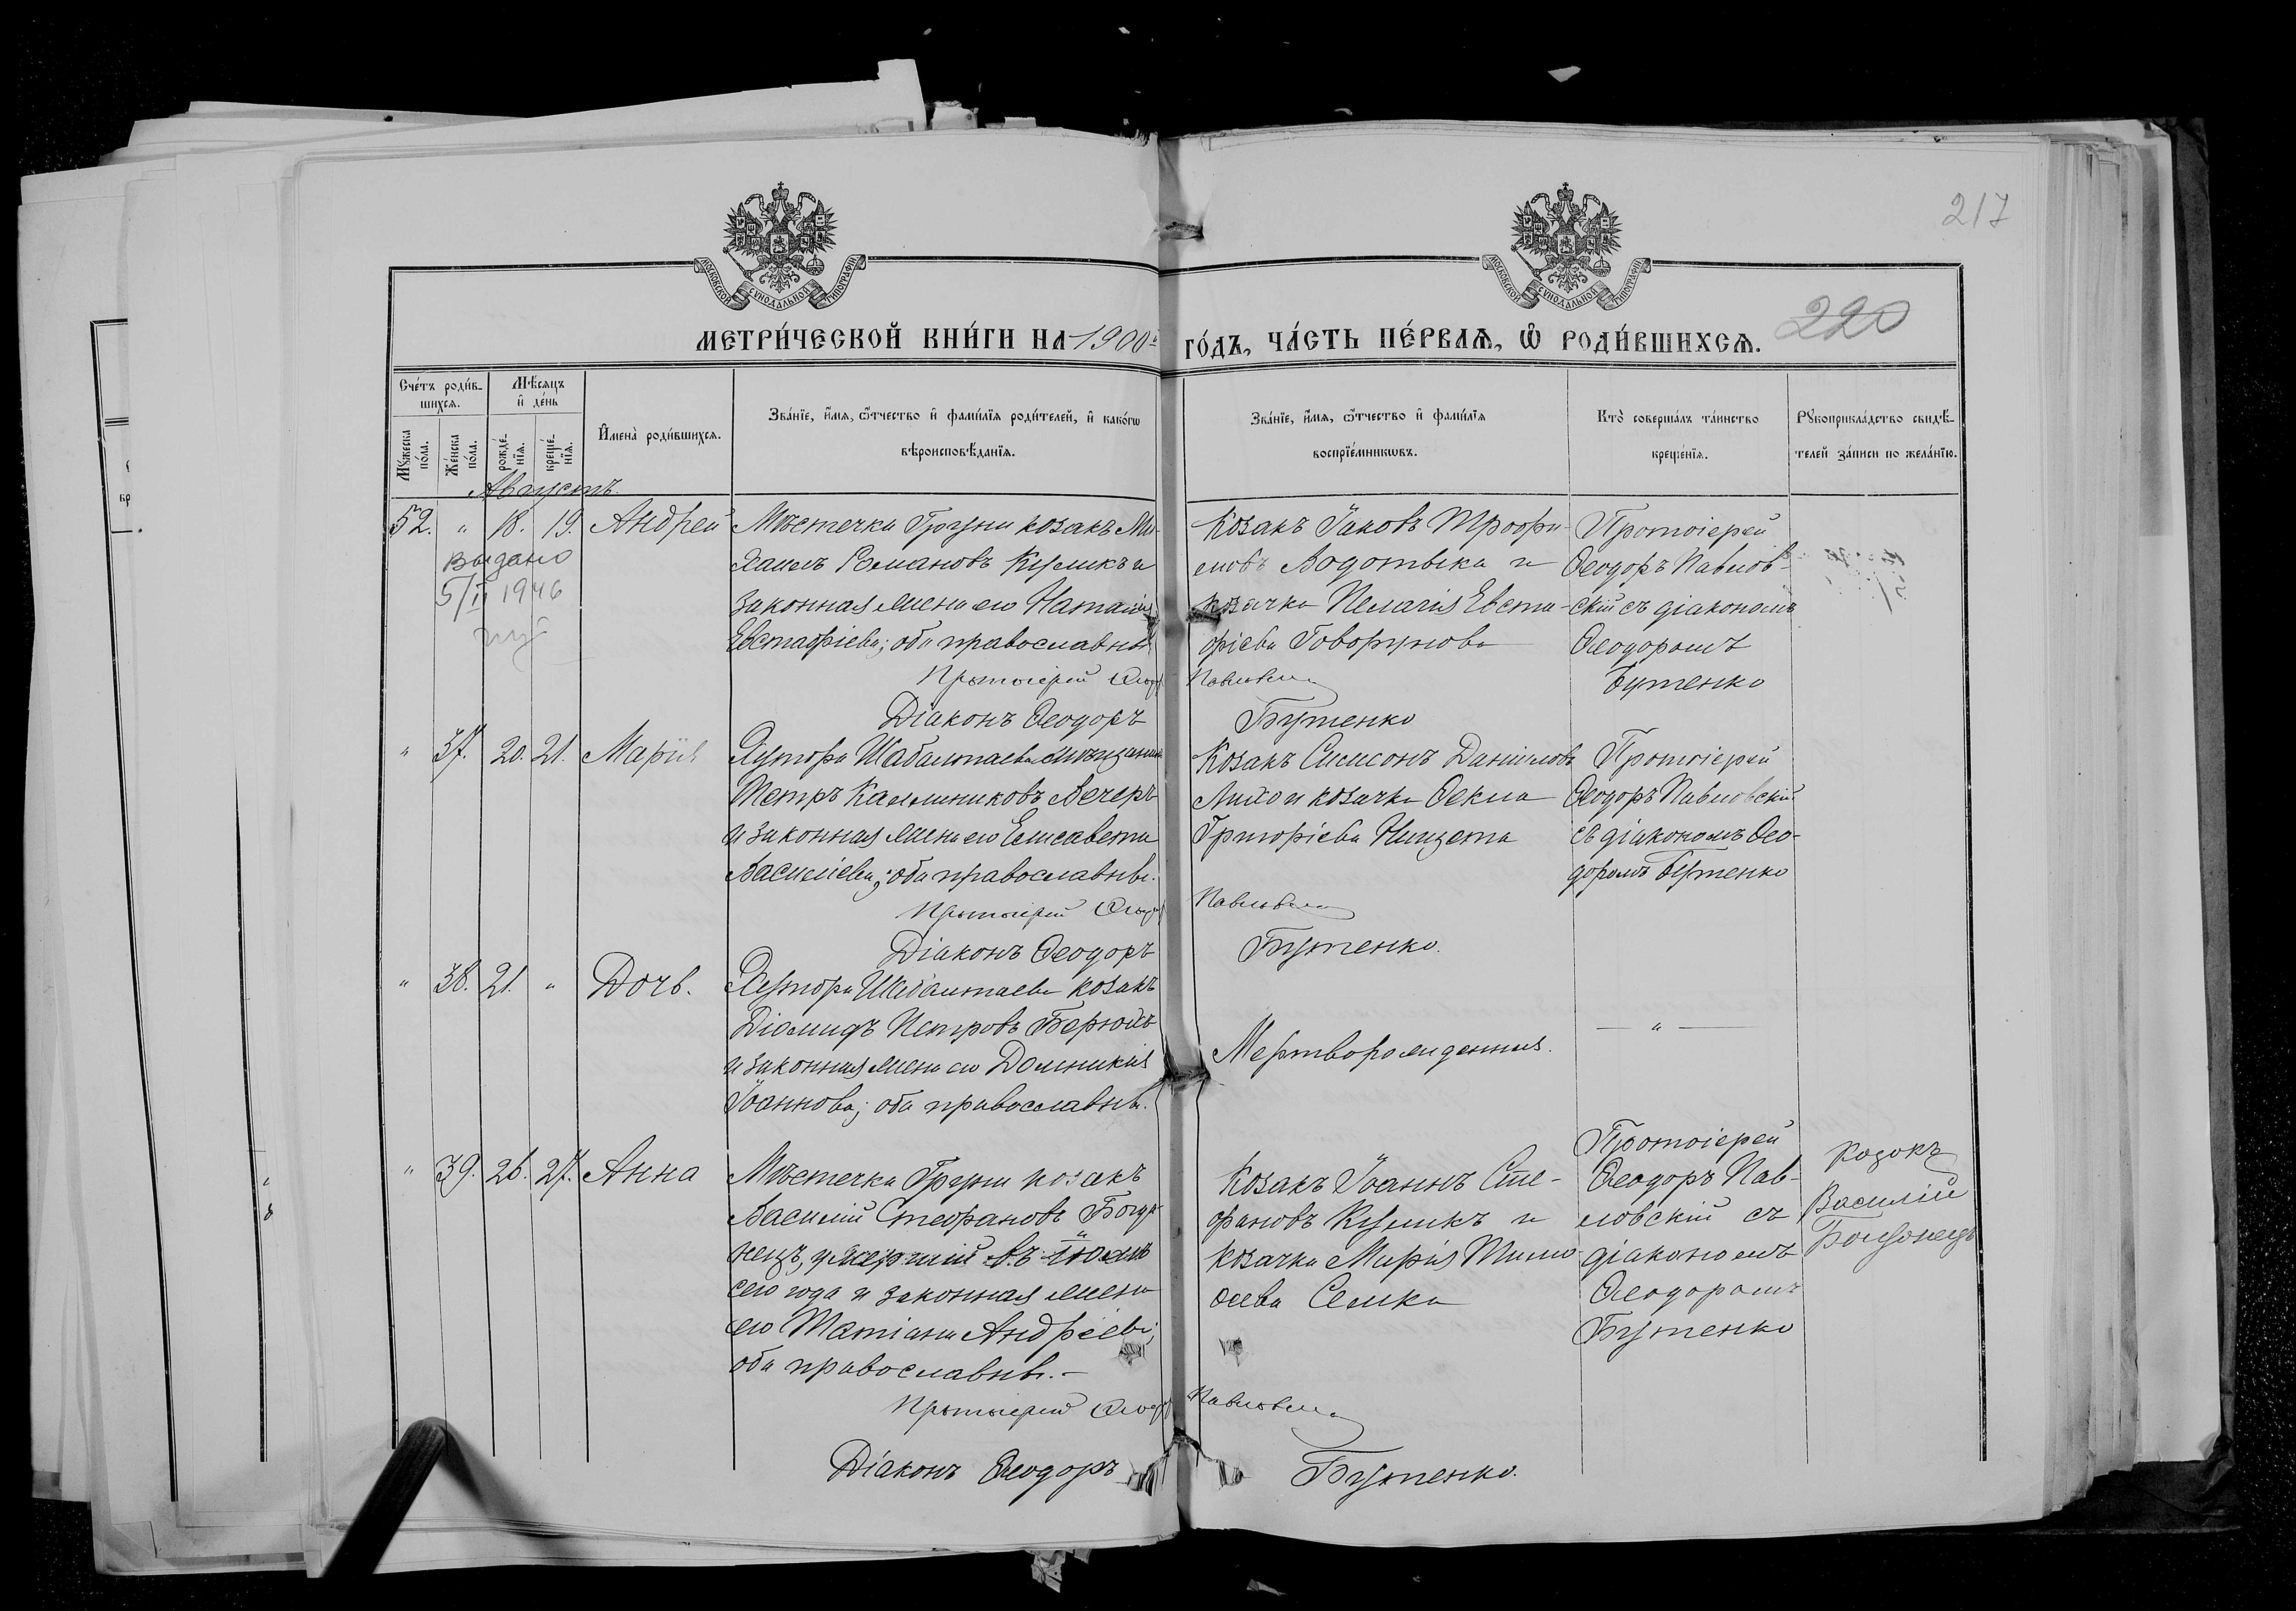 217
МОСКОВСКОЙ СѴНОДАЛЬНОЙ ТИПОГРАФІИ
МОСКОВСКОЙ СѴНОДАЛЬНОЙ ТИПОГРАФІИ
220
МЕТРИ́ЧЕСКОЙ КНИ́ГИ НА 1900й
ГО́ДЪ, ЧА́СТЬ ПЕ́РВАѦ, Ѡ҆ РОДИ́ВШИХСѦ.
Сче́тъ роди́в-
шихсѧ.
Мѣ́сѧцъ
и҆ де́нь
Мꙋ́жеска
по́ла.
Же́нска
по́ла.
рожде́-
нїѧ.
креще́-
нїѧ.
И҆мена̀ роди́вшихсѧ.
Зва́нїе, и҆́мѧ, ѻ҆́тчество и҆ фами́лїѧ роди́телей, и҆ како́гѡ
вѣроисповѣ́данїѧ.
Зва́нїе, и҆́мѧ, ѻ҆́тчество и҆ фами́лїѧ
воспрїе́мникѡвъ.
Кто̀ соверша́лъ та́инство
креще́нїѧ.
Рꙋкоприкла́дство свидѣ́-
телей за́писи по жела́нїю.
Августъ.
52. " 18. 19. Андрей
Выдано
5/II 1946
Мѣстечка Груни козакъ Ми-
хаилъ Романовъ Куликъ и
законная жена его Наталія
Евстафіева; оба православны
Протоіерей Ѳеодоръ
Діаконъ Ѳеодоръ
Козакъ Іаковъ Трофи-
мовъ Водотыка и
козачка Пелагія Евста-
фіева Говорунова
Павловскій
Бутенко
Протоіерей
Ѳеодоръ Павлов-
скій съ діакономъ
Ѳеодоромъ
Бутенко
" 37. 20. 21. Марія
Хутора Шабалтаева мѣщанинъ
Петръ Каллиниковъ Вечеръ
и законная жена его Елисавета
Василіева; оба православны.
Протоіерей Ѳеодоръ
Діаконъ Ѳеодоръ
Козакъ Симеонъ Даніиловъ
Лихо и козачка Ѳекла
Григоріева Нищета
Павловскій
Бутенко.
Протоіерей
Ѳеодоръ Павловскій
съ діакономъ Ѳео-
доромъ Бутенко
" 38. 21. " Дочь.
Хутора Шабалтаева козакъ
Діомидъ Петровъ
и законная жена его Домникія
Іоаннова; оба православны.
Мертворожденная.
— " —
" 39. 26. 27. Анна
Мѣстечка Груни козакъ
Василій Стефановъ
умершій въ
сего года и законная жена
его Татіана Андреева;
оба православны.-
Протоіерей Ѳеодоръ
Діаконъ Ѳеодоръ
Козакъ Іоаннъ Сте-
фановъ Куликъ и
козачка Марія Тимо-
ѳеева Семка
Павловскій
Бутенко.
Протоіерей
Ѳеодоръ Пав-
ловскій съ
діакономъ
Ѳеодоромъ
Бутенко
Козокъ
Василій